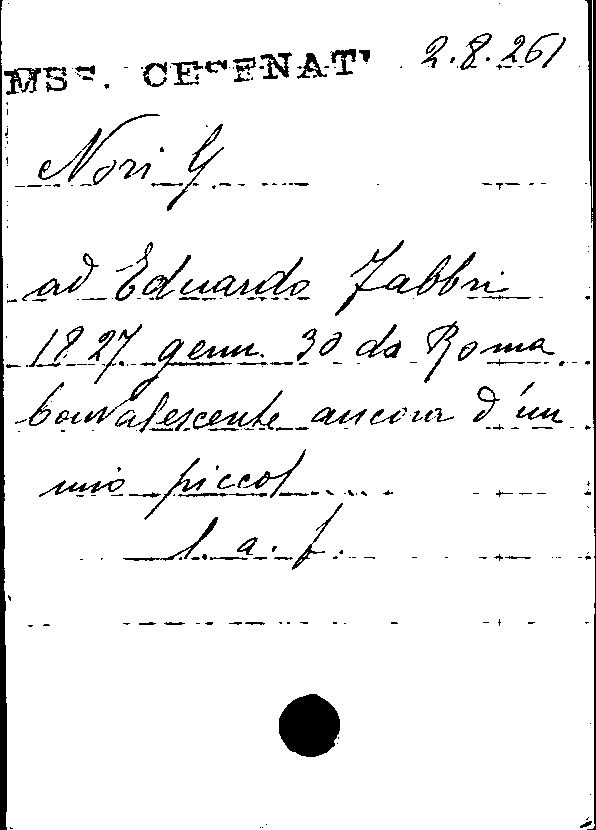 MSS. CESENATI 2.8.261
Nori G
ad Eduardo Fabbri
1827 genn. 30 da Roma
Convalescente ancora d'un
mio piccol....
l. a. f.